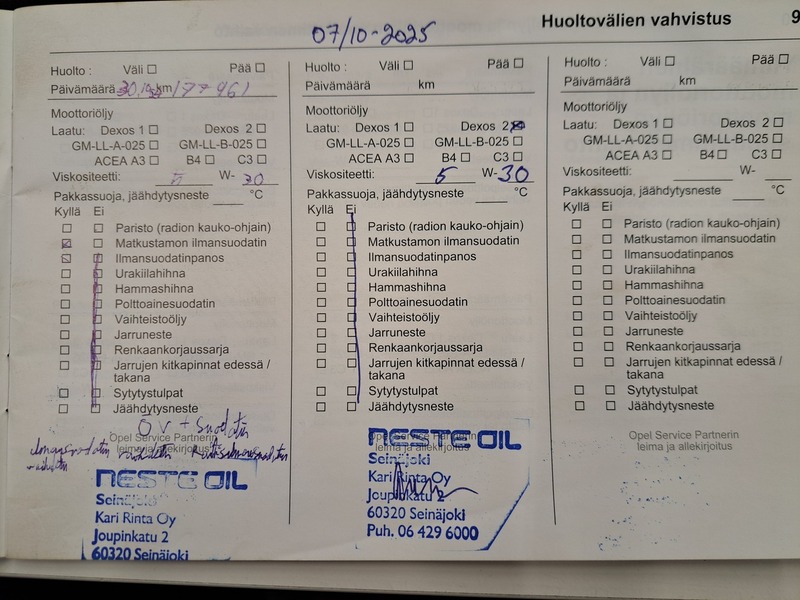 Huoltovälien vahvistus 9
07/10-2025
Huolto : Väli Pää
Päivämäärä km 177961
Moottoriöljy
Laatu: Dexos 1 Dexos 2
GM-LL-A-025 GM-LL-B-025
ACEA A3 B4 C3
Viskositeetti: 5 W- 30
Pakkassuoja, jäähdytysneste °C
Kyllä Ei
Paristo (radion kauko-ohjain)
Matkustamon ilmansuodatin
Ilmansuodatinpanos
Urakiilahihna
Hammashihna
Polttoainesuodatin
Vaihteistoöljy
Jarruneste
Renkaankorjaussarja
Jarrujen kitkapinnat edessä /
takana
Sytytystulpat
Jäähdytysneste
ÖV + suodatin
Opel Service Partnerin
leima ja allekirjoitus
NESTE OIL
Seinäjoki
Kari Rinta Oy
Joupinkatu 2
60320 Seinäjoki
Huolto : Väli Pää
Päivämäärä km
Moottoriöljy
Laatu: Dexos 1 Dexos 2
GM-LL-A-025 GM-LL-B-025
ACEA A3 B4 C3
Viskositeetti: 5 W- 30
Pakkassuoja, jäähdytysneste °C
Kyllä Ei
Paristo (radion kauko-ohjain)
Matkustamon ilmansuodatin
Ilmansuodatinpanos
Urakiilahihna
Hammashihna
Polttoainesuodatin
Vaihteistoöljy
Jarruneste
Renkaankorjaussarja
Jarrujen kitkapinnat edessä /
takana
Sytytystulpat
Jäähdytysneste
Opel Service Partnerin
leima ja allekirjoitus
NESTE OIL
Seinäjoki
Kari Rinta Oy
Joupinkatu 2
60320 Seinäjoki
Puh. 06 429 6000
Huolto : Väli Pää
Päivämäärä km
Moottoriöljy
Laatu: Dexos 1 Dexos 2
GM-LL-A-025 GM-LL-B-025
ACEA A3 B4 C3
Viskositeetti: W-
Pakkassuoja, jäähdytysneste °C
Kyllä Ei
Paristo (radion kauko-ohjain)
Matkustamon ilmansuodatin
Ilmansuodatinpanos
Urakiilahihna
Hammashihna
Polttoainesuodatin
Vaihteistoöljy
Jarruneste
Renkaankorjaussarja
Jarrujen kitkapinnat edessä /
takana
Sytytystulpat
Jäähdytysneste
Opel Service Partnerin
leima ja allekirjoitus